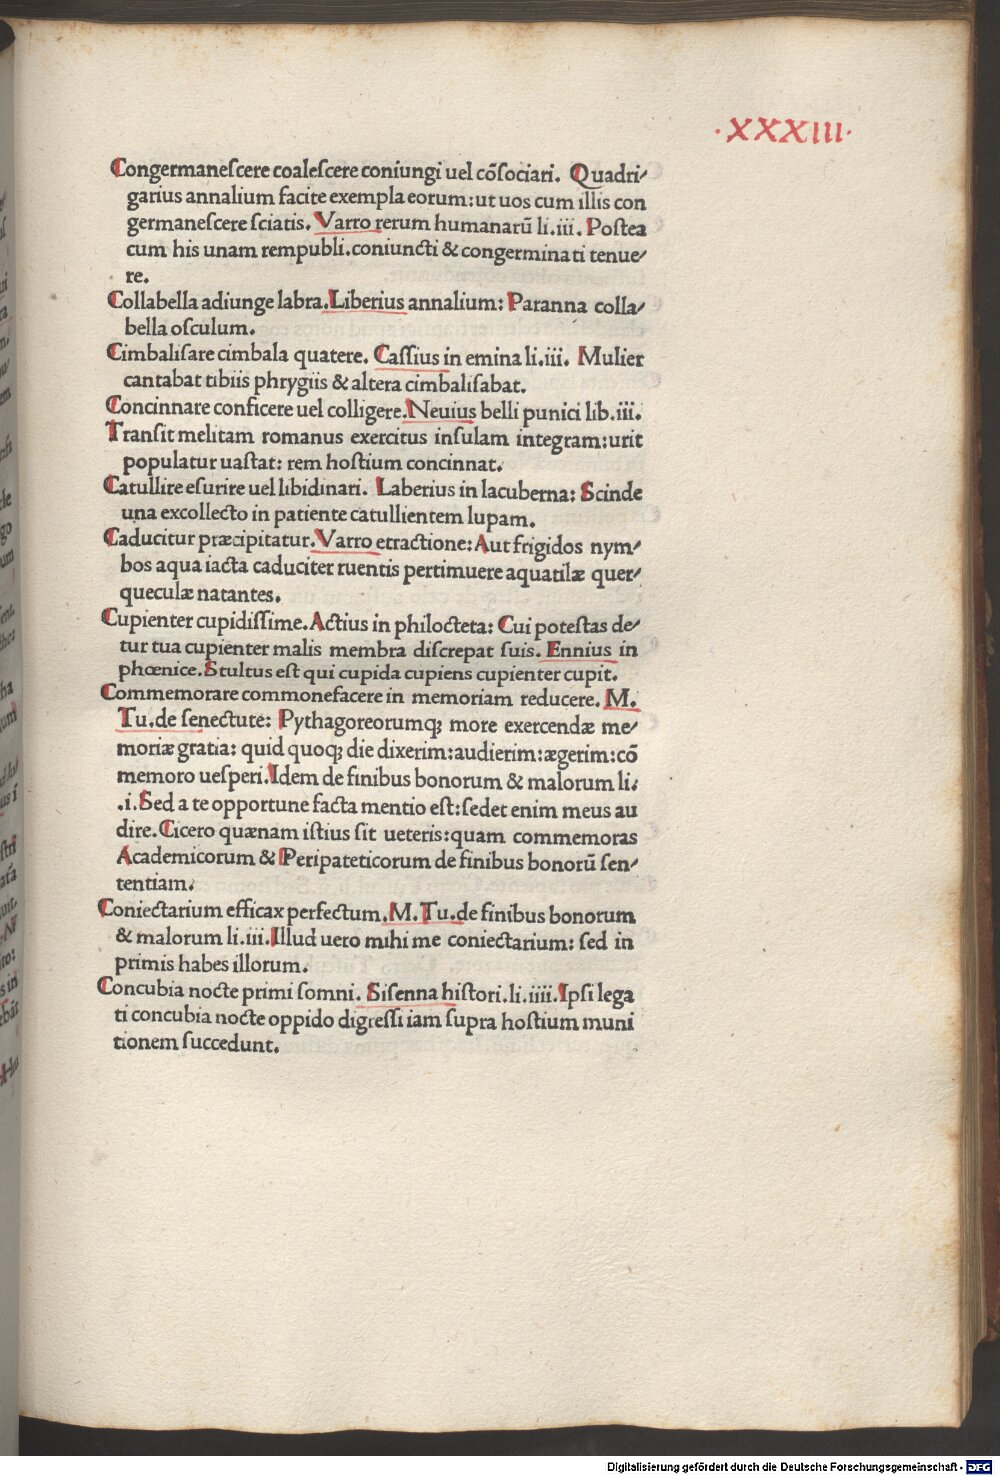 ·XXXIII·
Congermaneſcere coaleſcere coniungi uel cõſociari. Quadri⸗
garius annalium facite exempla eorum:ut uos cum illis con
germaneſcere ſciatis. Varro rerum humanarũ li.iii. Poſtea
cum his unam rempubli.coniuncti & congerminati tenue⸗
re.
Collabella adiunge labra.Liberius annalium: Paranna colla⸗
bella oſculum.
Cimbaliſare cimbala quatere. Caſſius in emina li.iii. Mulier
cantabat tibiis phrygiis & altera cimbaliſabat.
Concinnare conficere uel colligere.Neuius belli punici lib.iii.
Tranſit melitam romanus exercitus inſulam integram:urit
populatur uaſtat: rem hoſtium concinnat.
Catullire eſurire uel libidinari. Laberius in lacuberna: Scinde
una excollecto in patiente catullientem lupam.
Caducitur præcipitatur.Varro etractione:Aut frigidos nym⸗
bos aqua iacta caduciter ruentis pertimuere aquatilæ quer⸗
queculæ natantes.
Cupienter cupidiſſime.Actius in philocteta: Cui poteſtas de⸗
tur tua cupienter malis membra diſcrepat ſuis. Ennius in
phœnice.Stultus eſt qui cupida cupiens cupienter cupit.
Commemorare commonefacere in memoriam reducere. M.
Tu.de ſenectute: Pythagoreorumq; more exercendæ me⸗
moriæ gratia: quid quoq; die dixerim:audierim:ægerim:cõ
memoro ueſperi.Idem de finibus bonorum & malorum li.
.i.Sed a te opportune facta mentio eſt:ſedet enim meus au
dire.Cicero quænam iſtius ſit ueteris:quam commemoras
Academicorum & Peripateticorum de finibus bonorũ ſen⸗
tentiam.
Coniectarium efficax perfectum.M.Tu.de finibus bonorum
& malorum li.iii.Illud uero mihi me coniectarium: ſed in
primis habes illorum.
Concubia nocte primi ſomni. Siſenna hiſtori.li.iiii.Ipſi lega
ti concubia nocte oppido digreſſi iam ſupra hoſtium muni
tionem ſuccedunt.
Digitalisierung gefördert durch die Deutsche Forschungsgemeinschaft - DFG